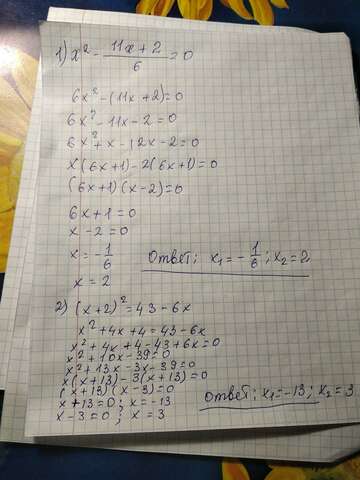 1) x² - (11x+2)/6 = 0
6x² - (11x+2) = 0
6x² - 11x - 2 = 0
6x² + x - 12x - 2 = 0
x(6x+1) - 2(6x+1) = 0
(6x+1)(x-2) = 0
6x+1 = 0
x - 2 = 0
x = - 1/6
x = 2
Ответ: x₁ = - 1/6 ; x₂ = 2
2) (x+2)² = 43 - 6x
x² + 4x + 4 = 43 - 6x
x² + 4x + 4 - 43 + 6x = 0
x² + 10x - 39 = 0
x² + 13x - 3x - 39 = 0
x(x+13) - 3(x+13) = 0
(x+13)(x-3) = 0
x + 13 = 0 ; x = -13
x - 3 = 0 ; x = 3
Ответ: x₁ = -13 ; x₂ = 3